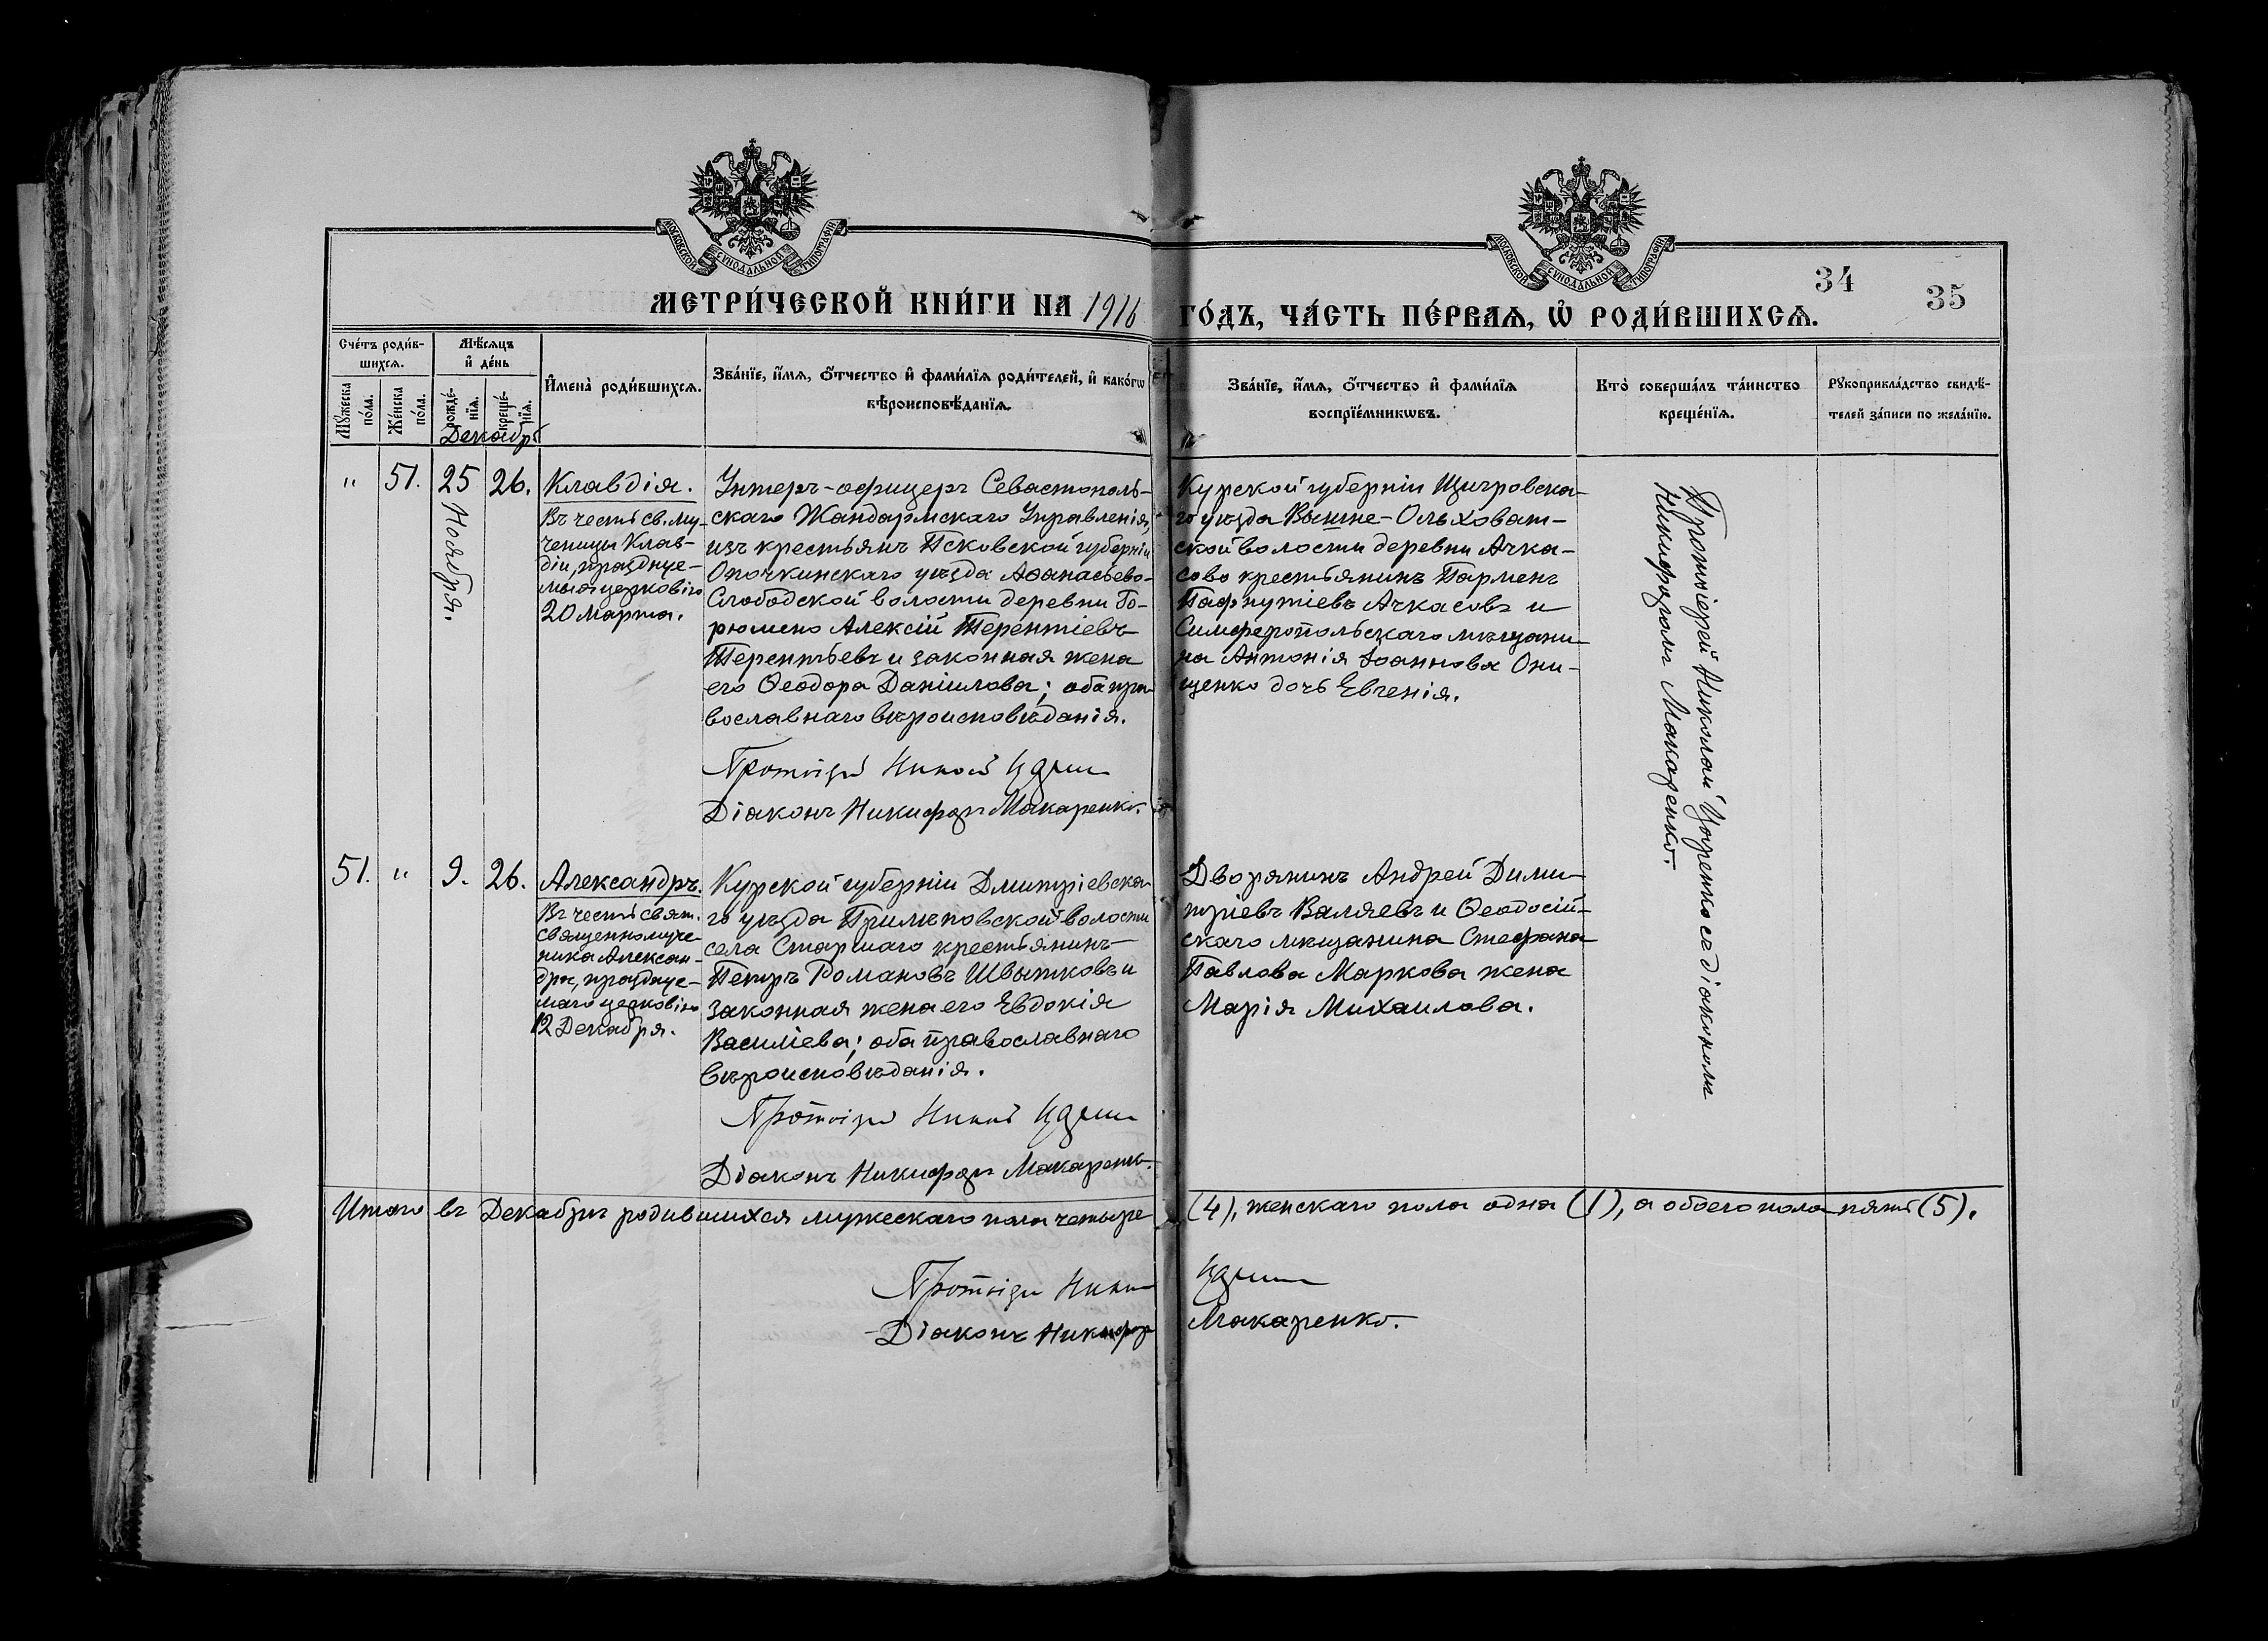 МОСКОВСКОЙ СѴНОДАЛЬНОЙ ТИПОГРАФІИ
МОСКОВСКОЙ СѴНОДАЛЬНОЙ ТИПОГРАФІИ
34
35
МЕТРИ́ЧЕСКОЙ КНИ́ГИ НА 1916 ГО́ДЪ, ЧА́СТЬ ПЕ́РВАѦ, Ѡ҆ РОДИ́ВШИХСѦ.
Сче́тъ роди́в-
шихсѧ.
Мꙋ́жеска
по́ла.
Же́нска
по́ла.
Мѣ́сѧцъ
и҆ де́нь
рожде́-
нїѧ.
креще́-
нїѧ.
И҆мена̀ роди́вшихсѧ.
Зва́нїе, и҆́мѧ, ѻ҆́тчество и҆ фами́лїѧ роди́телей, и҆ како́гѡ
вѣроисповѣ́данїѧ.
Зва́нїе, и҆́мѧ, ѻ҆́тчество и҆ фами́лїѧ
воспрїе́мникѡвъ.
Кто̀ соверша́лъ та́инство
креще́нїѧ.
Рꙋкоприкла́дство свидѣ́-
телей за́писи по жела́нїю.
Декабрь
" 51. 25 26.
Ноября.
Клавдія.
Въ честь св. му-
ченицы Клав-
діи, празднуе-
мыя церковію
20 Марта.
Унтеръ-офицеръ Севастополь-
скаго Жандармскаго Управленія,
изъ крестьянъ Псковской губерніи
Опочкинскаго уѣзда Аѳанасьево-
Слободской волости деревни Го-
рюшено Алексій Терентіевъ
Терентьевъ и законная жена
его Ѳеодора Даніилова; оба пра-
вославнаго вѣроисповѣданія.
Протоіерей Николай
Діаконъ Никифоръ Макаренко.
Курской губерніи Щигровска-
го уѣзда Вышне-Ольховат-
ской волости деревни Ачка-
сово крестьянинъ Парменъ
Пафнутіевъ Ачкасовъ и
Симферопольскаго мѣщани-
на Антонія Іоаннова Они-
щенко дочь Евгенія.
Протоіерей Николай съ діакономъ
Никифоромъ Макаренко.
51. " 9. 26.
Александръ.
Въ честь свят.
священномуче-
ника Алексан-
дра, празднуе-
маго церковію
12 Декабря.
Курской губерніи Дмитріевска-
го уѣзда волости
села Старшаго крестьянинъ
Петръ Романовъ Швытковъ и
законная жена его Евдокія
Василіева; оба православнаго
вѣроисповѣданія.
Протоіерей Николай
Діаконъ Никифоръ Макаренко.
Дворянинъ Андрей Дими-
тріевъ Валяевъ и Ѳеодосій-
скаго мѣщанина Стефана
Павлова Маркова жена
Марія Михаилова.
Итого въ Декабрѣ родившихся мужескаго пола четыре (4), женскаго пола одна (1), а обоего пола пять (5).
Протоіерей Николай
Діаконъ Никифоръ Макаренко.